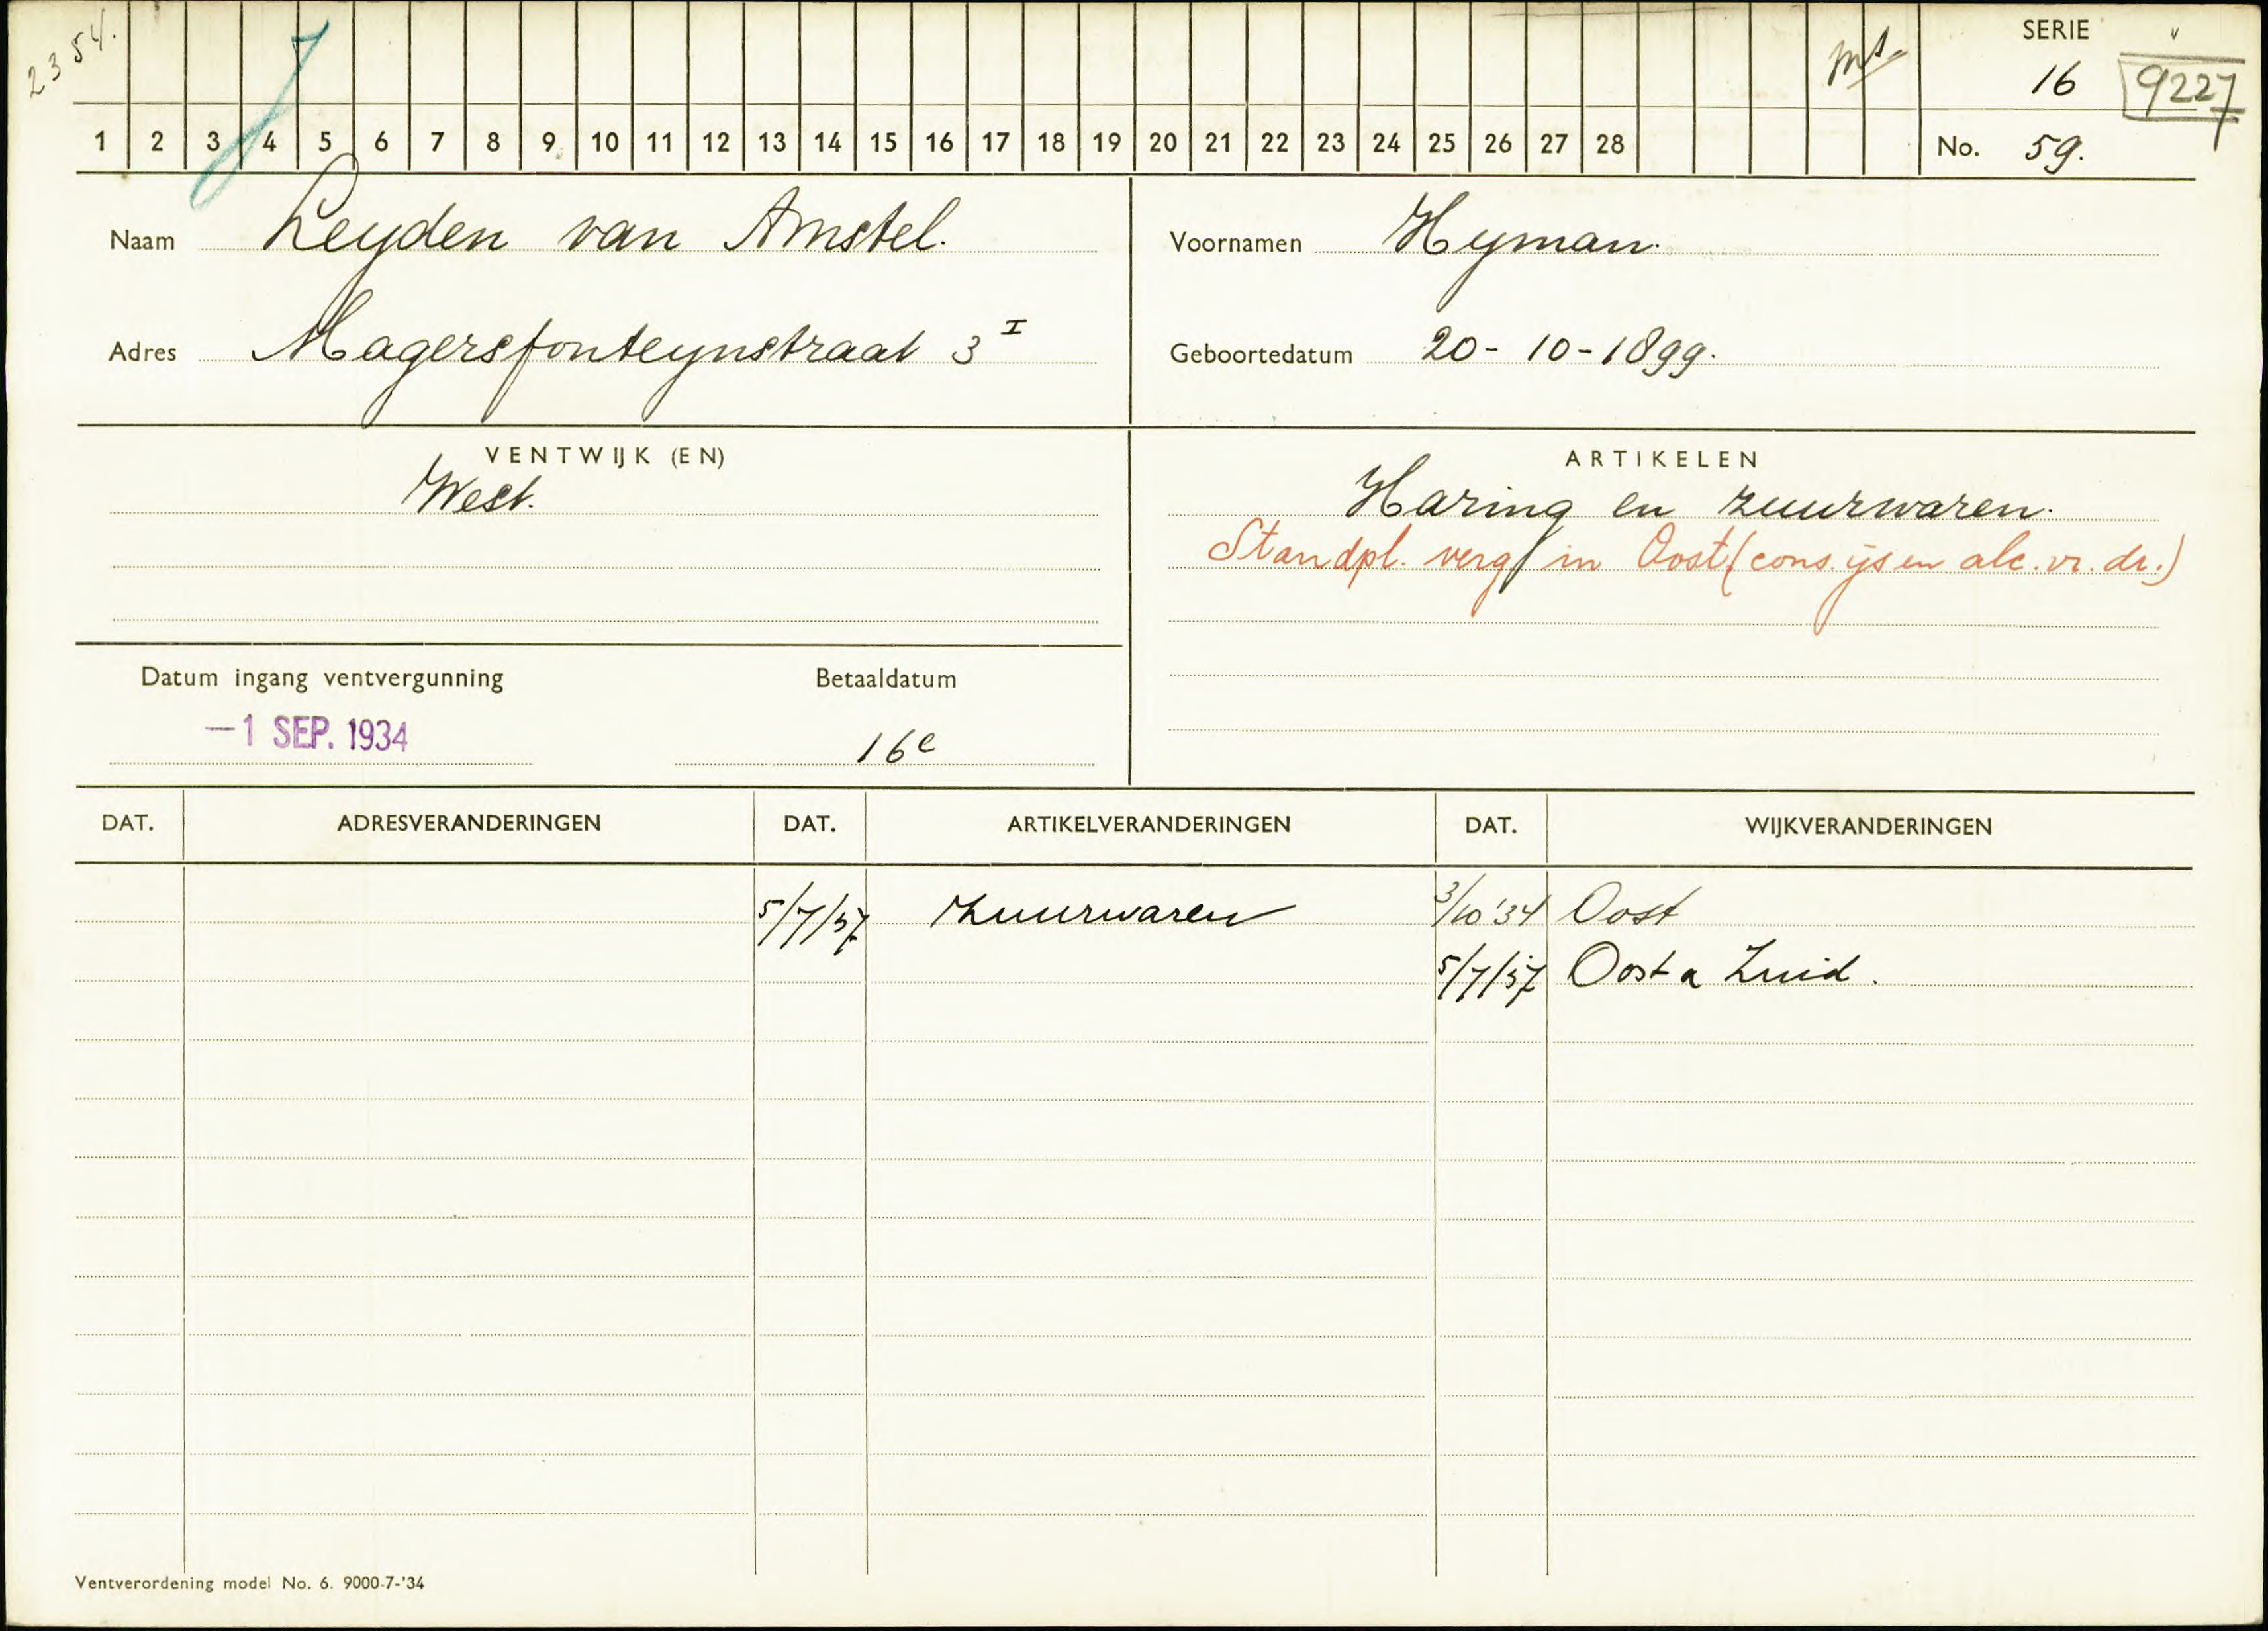 2354.
SERIE
16
9227
1 2 3 4 5 6 7 8 9 10 11 12 13 14 15 16 17 18 19 20 21 22 23 24 25 26 27 28
No. 59.
Naam Leyden van Amstel.
Voornamen Hyman.
Adres Magersfonteynstraat 3 I
Geboortedatum 20-10-1899.
VENTWIJK (EN)
West.
ARTIKELEN
Haring en zuurwaren.
Standpl. verg in Oost (cons. ijs en alc. vr. dr.)
Datum ingang ventvergunning
Betaaldatum
-1 SEP. 1934
16e
DAT. ADRESVERANDERINGEN DAT. ARTIKELVERANDERINGEN DAT. WIJKVERANDERINGEN
5/7/37 zuurwaren 3/10 '34 Oost
5/7/37 Oost a Zuid.
Ventverordening model No. 6. 9000-7-'34